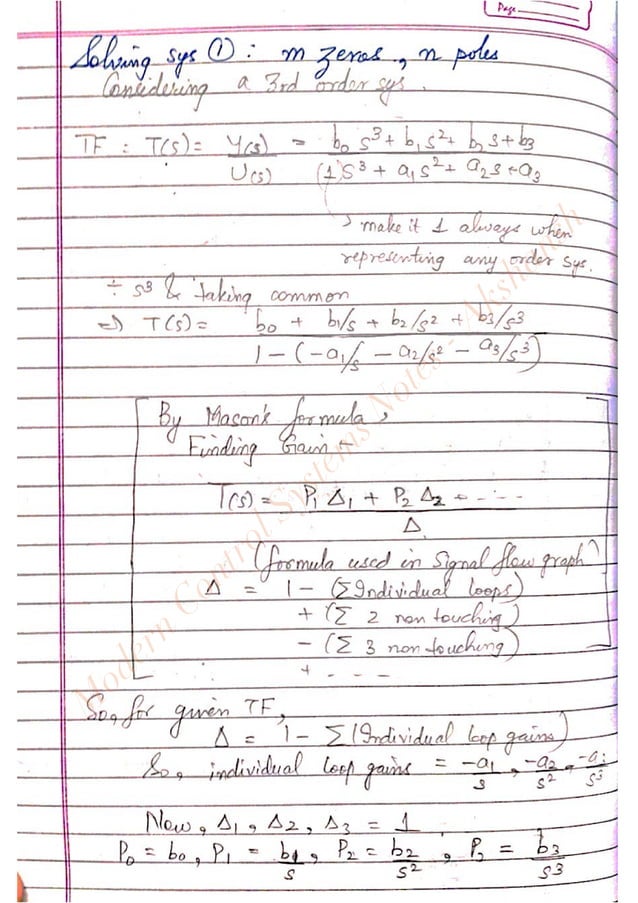 Page
Solving sys ① : m zeros, n poles
Considering a 3rd order sys.
TF : T(s) = Y(s)/U(s) = (b0 s³ + b1 s² + b2 s + b3)/((1)s³ + a1 s² + a2 s + a3)
→ make it 1 always when
representing any order sys.
÷ s³ & taking common
⇒ T(s) = (b0 + b1/s + b2/s² + b3/s³)/(1 - (-a1/s - a2/s² - a3/s³))
By Mason's formula,
Finding Gain
T(s) = (P1 Δ1 + P2 Δ2 + - - -)/Δ
(formula used in signal flow graph)
Δ = 1 - (Σ Individual loops)
+ (Σ 2 non touching)
- (Σ 3 non touching)
+ - - - -
So, for given TF,
Δ = 1 - Σ(Individual loop gains)
So, individual loop gains = -a1/s, -a2/s², -a3/s³
Now, Δ1, Δ2, Δ3 = 1
P0 = b0, P1 = b1/s, P2 = b2/s², P3 = b3/s³
Modern Control Systems Notes - Akshansh